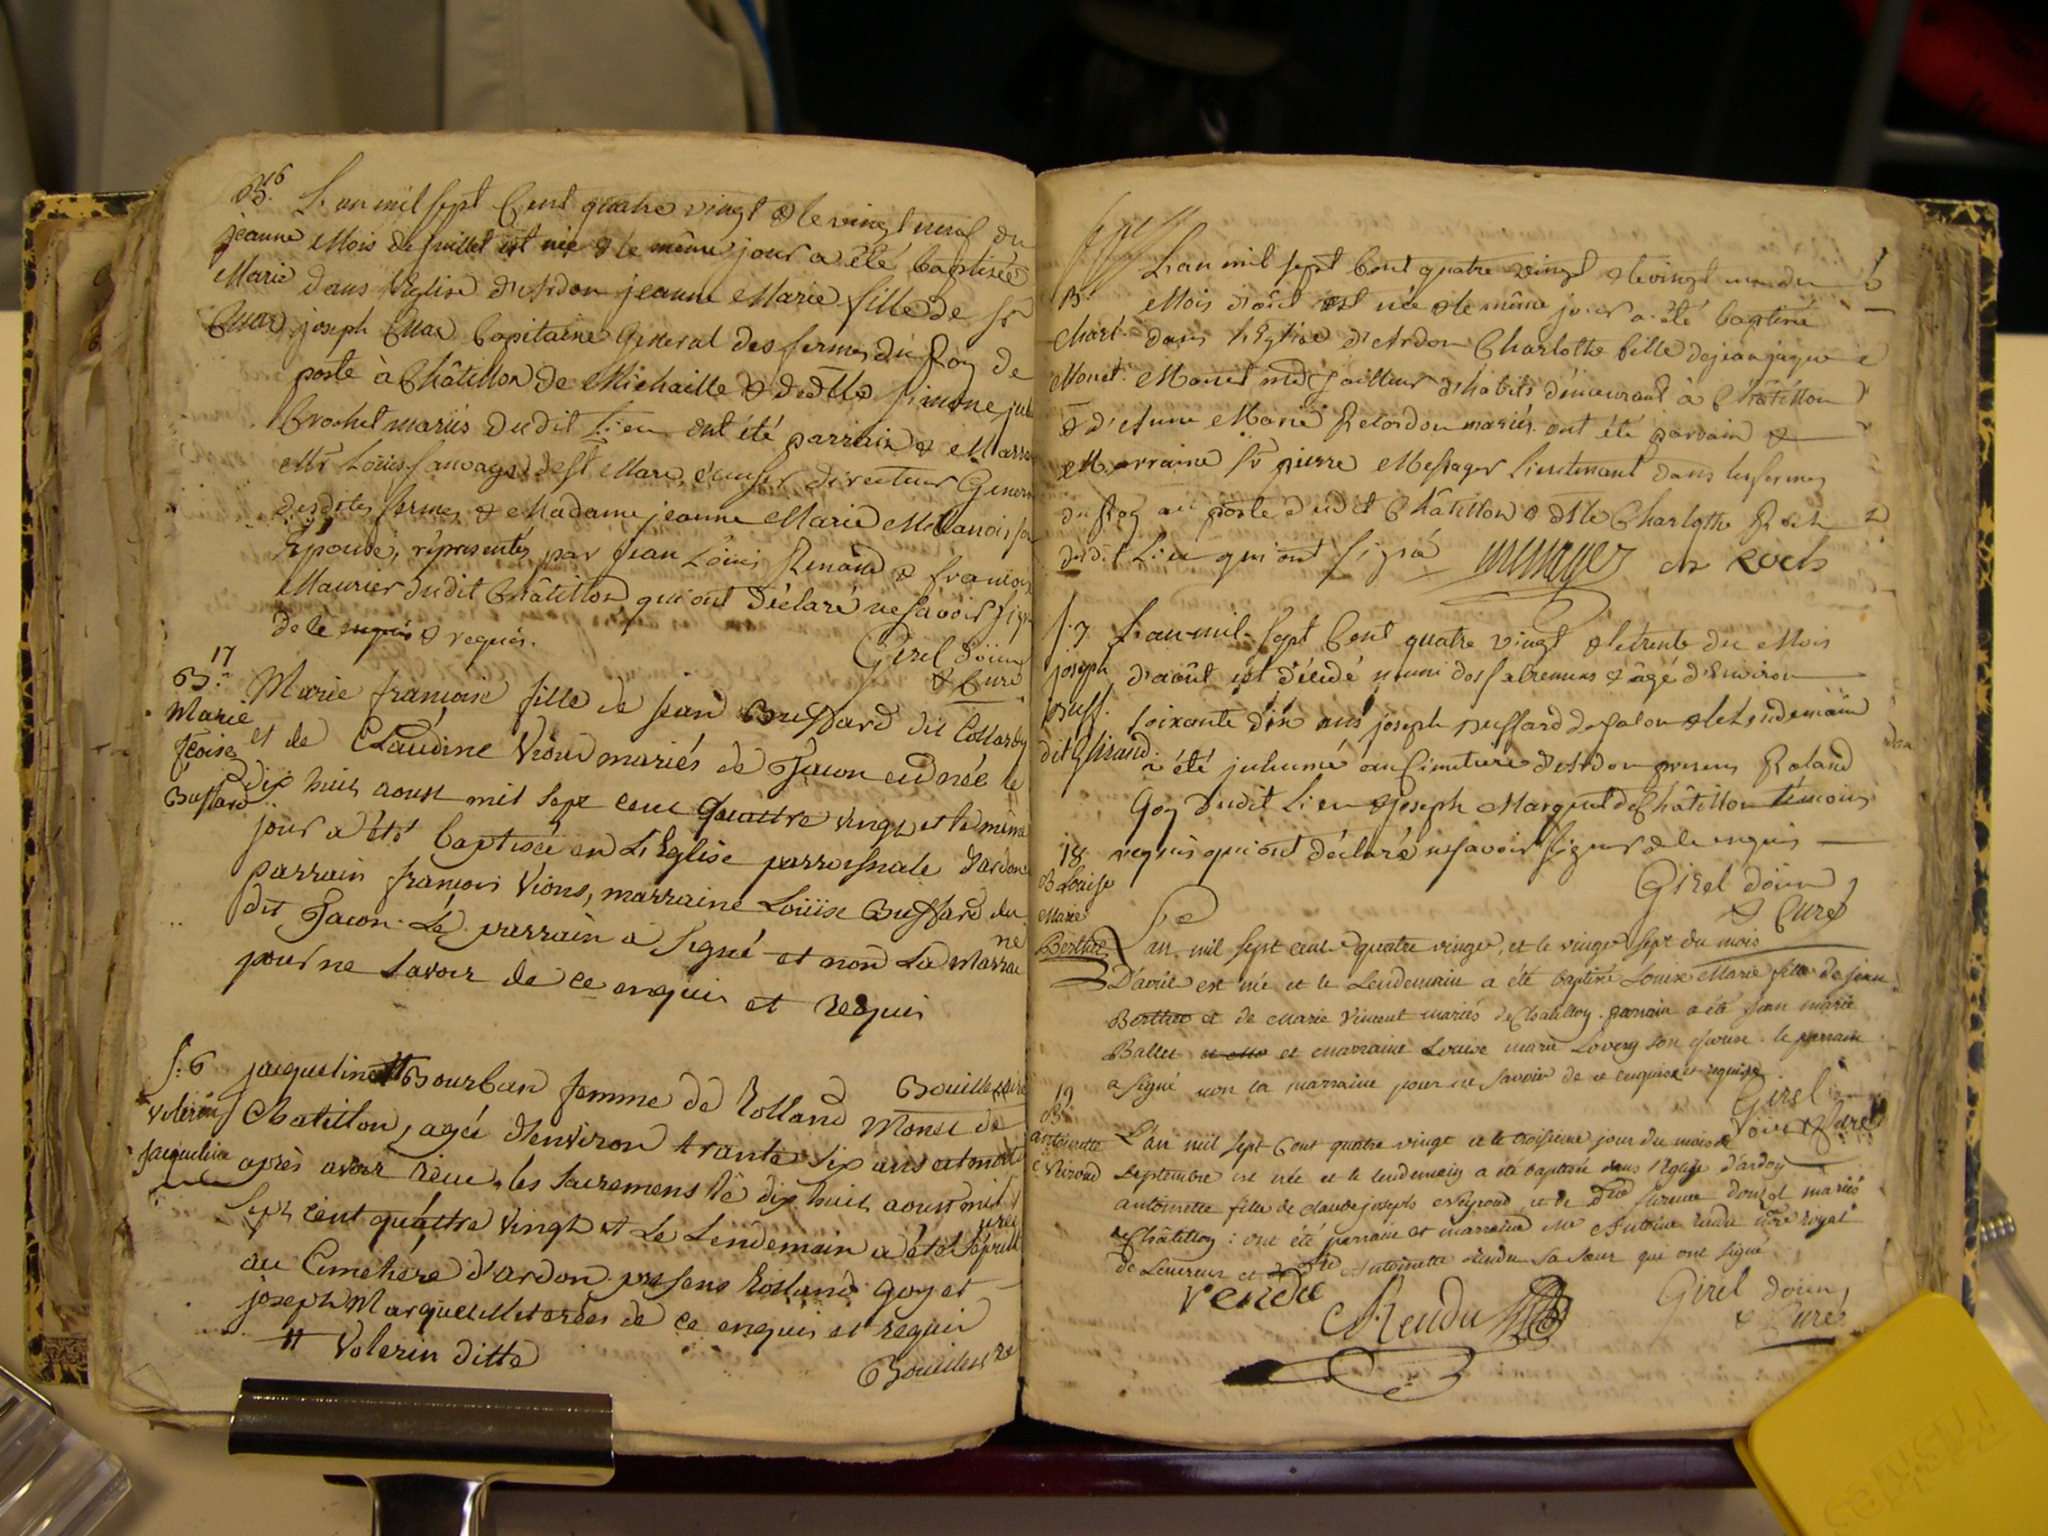 B. 6
L'an mil sept Cent quatre vingt & le vingt neuf du
jeanne Mois de juillet est née & le même jour a été baptisée
Marie dans l'Eglise d'Ardon jeanne Marie fille de Sr
joseph Capitaine General des fermes du Roy de
poste à Châtillon de Michaille & de dlle Simone
Crochet mariés dudit Lieu ont été parrain & Marra
Mr Loüis sauvage de St Marc, directeur Gener
desdites fermes & Madame jeanne Marie Millanois sa
Epouse, réprésentés par jean Loüis Renaud & françois
Maurier dudit Châtillon qui ont déclaré ne savoir sign
de ce enquis & requis.
Girel doïen
& Curé
17
B.
Marie
fçoise
Buffard
Marie françoise fille de jean Buffard dit Collardy
et de Claudine Vion mariés de Tacon est née le
dix huit aoust mil sept cent quattre vingt et le même
jour a été baptisée en L'Eglise parroissiale d'ardon
parrain françois Vions, marraine Loüise Buffard du
dit Tacon. Le parrain a signé et non La marraine
pour ne savoir de ce enquis et requis
S. 6
Volerin
jacqueline
Bouilles
jaqueline # Bourban femme de Rolland Monet de
Chatillon, agée d'environ trante six ans est morte
après avoir reçue les sacremens le dix huit aoust mil
sept cent quattre vingt et Le Lendemain a été
au Cimetière d'ardon presens Rolland goy et
joseph Marquet de ce enquis et requis
# Volerin ditte
L'an mil sept Cent quatre vingt & le vingt un du
B.
Mois d'aôut est née & le même jour a été baptisée
Charl. dans l'Eglise d'Ardon Charlotte fille de jean jaque
Monet. Monet md Tailleur d'habits demeurant à Châtillon
& d'Anne Marie Retordon mariés. ont été parrain &
Marraine Sr pierre Messager Lieutenant dans les fermes
du Roy au poste dudit Châtillon & dlle Charlotte Roch
dudit Lieu qui ont signé messager ch Roch
S. 7.
joseph
Buff.
dit Girand
L'an mil sept Cent quatre vingt & le trente du Mois
d'août est décédé muni des sacremens & âgé d'Environ
soixante dix ans joseph Buffard de Tacon & le Lendemain
a été inhumé au Cimetiere d'Ardon presens Roland
Goy dudit Lieu & joseph Marquet de Châtillon témoins
requis qui ont déclaré ne savoir signer de ce enquis
Girel doïen
& Curé
18
B Louise
Marie
Berthet
L'an mil sept cent quatre vingt, et le vingt sept du mois
D'avril est née et le Lendemain a été baptisée Louise Marie fille de jean
Berthet et de Marie Vincent mariés de Chatillon. parrain a été jean marie
Ballet et marraine Louise marie Lovery son épouse. le parrain
a signé non la marraine pour ne savoir de ce enquise et requise
Girel
Doïen & Curé
19
B
antoinette
Neiroud
L'an mil sept Cent quatre vingt et le troisieme jour du mois de
Septembre est née et le lendemain a été baptisée dans l'Eglise d'ardon
antoinette fille de claude joseph Neyroud et de Dlle mariés
de Châtillon: ont été parrain et marraine Me Antoine rendu nore royal
de et Dlle Antoinette rendu sa sœur qui ont signé
rendu
Rendu
Girel doïen,
& Curé